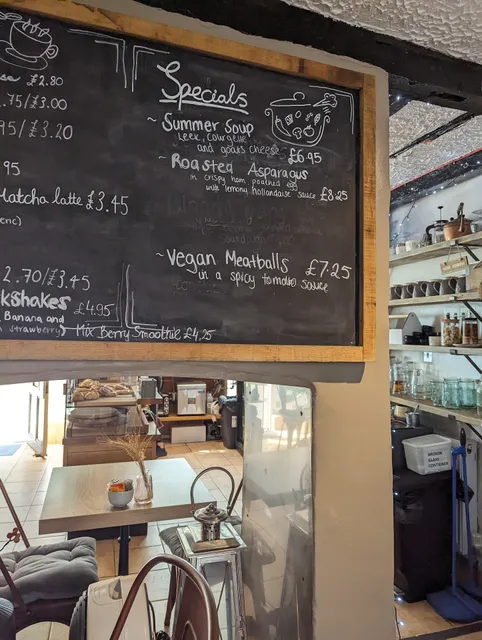 Specials
~ Summer Soup
Leek, courgette
and goats cheese £6.95
~ Roasted Asparagus
in crispy ham poached egg
with lemony hollandaise sauce £8.25
~ Vegan Meatballs £7.25
in a spicy tomato sauce
£2.80
.75/£3.00
.95/£3.20
95
Matcha latte £3.45
2.70/£3.45
kshakes £4.95
Banana and
strawberry)
Mix Berry Smoothie £4.25
BROKEN
GLASS
CONTAINER